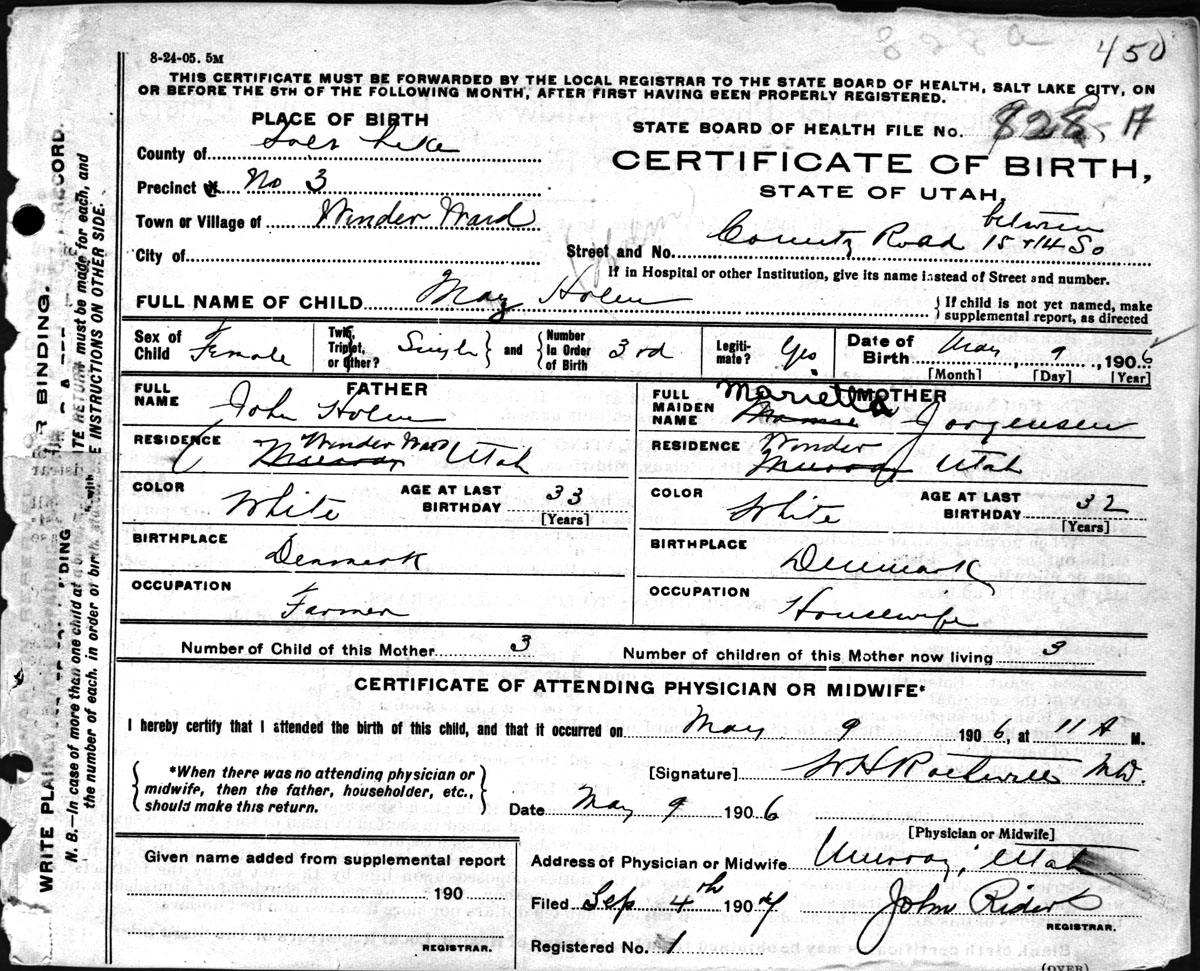 8-24-05. 5M
450
THIS CERTIFICATE MUST BE FORWARDED BY THE LOCAL REGISTRAR TO THE STATE BOARD OF HEALTH, SALT LAKE CITY, ON
OR BEFORE THE 5TH OF THE FOLLOWING MONTH, AFTER FIRST HAVING BEEN PROPERLY REGISTERED.
PLACE OF BIRTH
STATE BOARD OF HEALTH FILE No. 828 A
County of Salt Lake
CERTIFICATE OF BIRTH,
Precinct No 3
STATE OF UTAH,
Town or Village of Winder Ward
Street and No. County Road between 15 & 14 So
City of
If in Hospital or other Institution, give its name instead of Street and number.
FULL NAME OF CHILD May Holm
If child is not yet named, make
supplemental report, as directed
Sex of Child Female
Twin, Triplet, or Other? Single and Number In Order of Birth 3rd
Legitimate? Yes
Date of Birth May 9, 1906
[Month] [Day] [Year]
FATHER
FULL NAME John Holm
RESIDENCE Murray Winder Ward Utah
COLOR White
AGE AT LAST BIRTHDAY 33
[Years]
BIRTHPLACE Denmark
OCCUPATION Farmer
MOTHER
FULL MAIDEN NAME Mariella Jorgensen
RESIDENCE Murray Winder Utah
COLOR White
AGE AT LAST BIRTHDAY 32
[Years]
BIRTHPLACE Denmark
OCCUPATION Housewife
Number of Child of this Mother 3
Number of children of this Mother now living 3
CERTIFICATE OF ATTENDING PHYSICIAN OR MIDWIFE*
I hereby certify that I attended the birth of this child, and that it occurred on May 9 1906, at 11 A M.
*When there was no attending physician or
midwife, then the father, householder, etc.,
should make this return.
[Signature] W H Rothwell MD.
Date May 9 1906
[Physician or Midwife]
Given name added from supplemental report
190
REGISTRAR.
Address of Physician or Midwife Murray, Utah
Filed Sep 4th 1907
John
REGISTRAR.
Registered No. 1
(OVER)
WRITE PLAINLY
BINDING.
RECORD.
N. B.—In case of more than one child at a RETURN must be made for each, and
the number of each, in order of birth, INSTRUCTIONS ON OTHER SIDE.